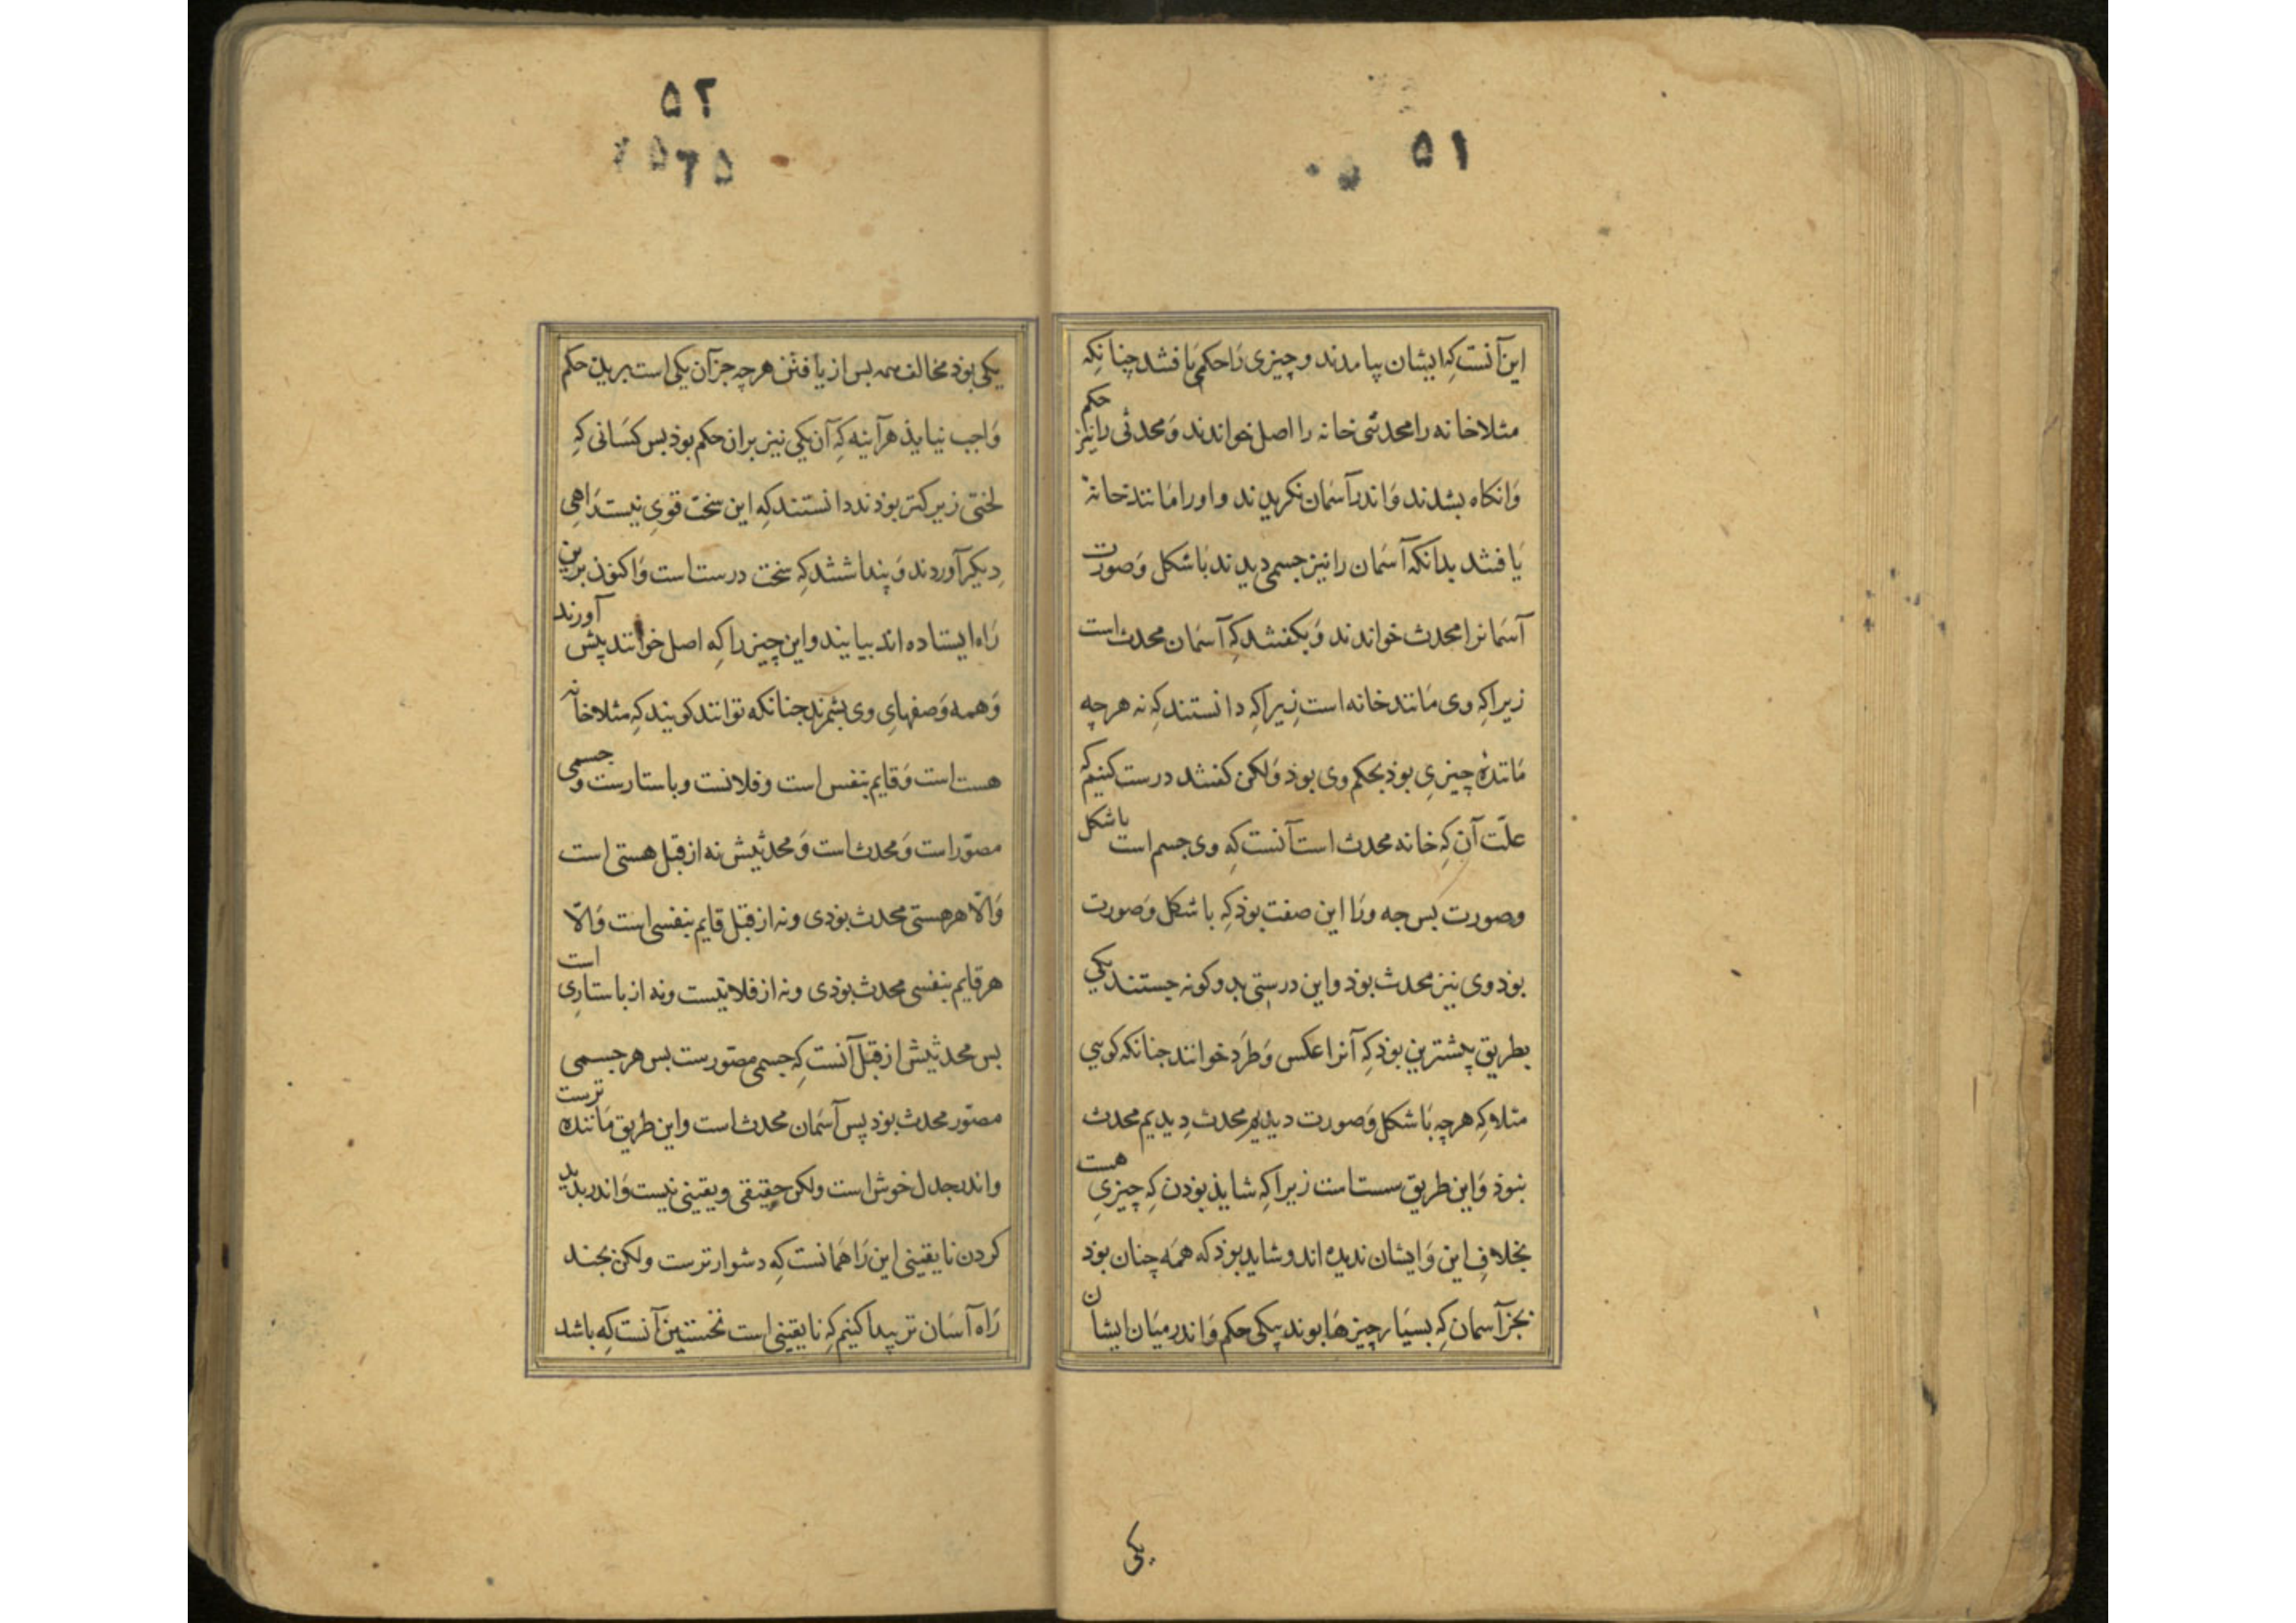 ۵۱
این آنست کِه ایشان بیامدند و چیزی رَا حکمی یَافتند چنانکِه
مثلا خانه را محدثی خانه را اصل خواندند وَ محدثی را نیز حکم
وَانکاه بشدند وَاندر آسَمان نکریدند و او را مَانند خانهٔ
یَافتند بدانکه آسَمان را نیز جسمی دیدند بَا شکل وَصورت
آسَمانرا محدث خواندند وَ بکفتند کِه آسَمان محدث است
زیرا کِه وی مَانند خانه است زیرا کِه دانستند کِه نه هر چه
مَانندهٔ چیزیِ بوذ بحکم وی بوذ وَلکن کفتند درست کنیم کِه
علّت آن کِه خانه محدث است آنست کِه وی جسم است با شکل
وصورت بس جه ورَا این صفت بوذ کِه با شکل وَصورت
بوذ وی نیز محدث بوذ و این درستی بدو کونه جستند یکی
بطریق پیشترین بوذ کِه آنرا عکس وَ طَرد خوانند جنانکه کویی
مثلا کِه هرچه بَا شکل وَصورت دیدیم محدث دِیدیم محدث
بنوذ وَ این طریق سست است زیرا کِه شایذ بوذن کِه چیزیِ هست
بخلافِ این وَ ایشان ندیده اند و شاید بوذ که همَه چنان بوذ
بجز آسمان کِه بسیَار چیزهَا بوند بیکی حکم وَاندر میَان ایشان
یکی
۵۲
یکی بوذ مخالف همه بس از یَافتن هر چه جز آن یکی است برین حکم
وَاجب نیایذ هر آینه کِه آن یکی نیز بران حکم بوذ بس کسَانی کِه
لختی زیرکتر بوذند دانستند کِه این سخت قویِ نیست رَاهیِ
دِیکر آوردند وَ پنداشتند کِه سخت درست است وَ اکنون برین
رَاه ایستاده اند بیایند و این چیز را کِه اصل خوانند پیش آورند
وَهمه وَصفهایِ وی بشمرند جنانکه توانند کویند کِه مثلا خانه
هست است وَ قایم بنفس است و فلانست و باستارست و جسمی
مصوّر است وَ محدث است وَ محدثیش نه از قبل هستی است
وَالّا هر هستی محدث بوذی و نه از قبل قایم بنفسی است وَالّا
هر قایم بنفسی محدث بوذی و نه از فلانیست و نه از باستاریِ است
بس محدثیش از قبل آنست کِه جسمی مصوّرست بس هر جسمی
مصوّر محدث بوذ پس آسَمان محدث است و این طریق مَاننده ترست
و اندر جدل خوش است ولکن حقیقی و یقینی نیست وَ اندر بدید
کردن نایقینی این رَا همَانست کِه دشوارترست ولکن بجند
رَاه آسَان تر پیدا کنیم کِه نایقینی است نخستین آنست کِه باشد